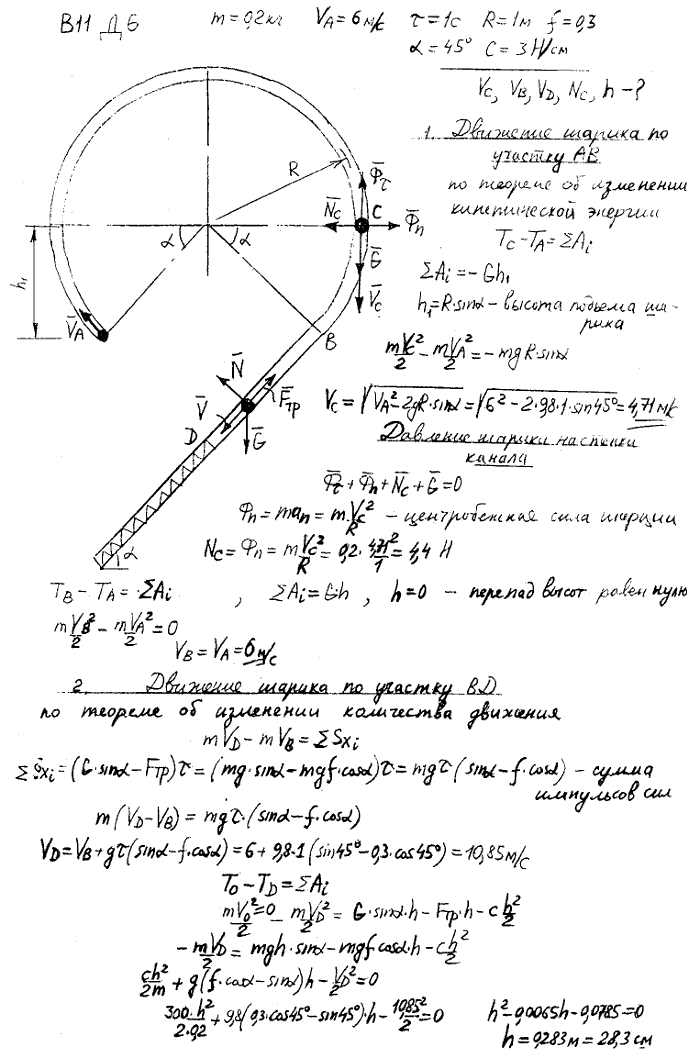 В11 Д6 m = 0,2 кг V_A = 6 м/с τ = 1с R = 1м f = 0,3
α = 45° C = 3 Н/см
V_C, V_B, V_D, N_C, h - ?
1. Движение шарика по
участку АВ
по теореме об изменении
кинетической энергии
T_C - T_A = ΣA_i
ΣA_i = -Gh₁
h₁ = R·sinα - высота подъема ша-
рика
mV_C²/2 - mV_A²/2 = -mgR·sinα
V_C = √(V_A² - 2gR·sinα) = √(6² - 2·9,8·1·sin45°) = 4,71 м/с
R
Φ̄_τ
N̄_C
C
Φ̄_n
α
α
Ḡ
V̄_C
h₁
V̄_A
B
N̄
V̄
F̄_тр
D
Ḡ
α
Давление шарика на стенки
канала
Φ̄_τ + Φ̄_n + N̄_C + Ḡ = 0
Φ_n = ma_n = m V_C²/R - центробежная сила инерции
N_C = Φ_n = m V_C²/R = 0,2 · 4,71²/1 = 4,4 Н
T_B - T_A = ΣA_i , ΣA_i = Gh , h = 0 - перепад высот равен нулю
mV_B²/2 - mV_A²/2 = 0
V_B = V_A = 6 м/с
2. Движение шарика по участку ВД
по теореме об изменении количества движения
mV_D - mV_B = ΣS_xi
ΣS_xi = (G·sinα - F_тр)τ = (mg·sinα - mgf·cosα)τ = mgτ(sinα - f·cosα) - сумма
импульсов сил
m(V_D - V_B) = mgτ·(sinα - f·cosα)
V_D = V_B + gτ(sinα - f·cosα) = 6 + 9,8·1(sin45° - 0,3·cos45°) = 10,85 м/с
T_0 - T_D = ΣA_i
mV_0²/2 = 0 - mV_D²/2 = G·sinα·h - F_тр·h - c h²/2
- mV_D/2 = mgh·sinα - mgf·cosα·h - c h²/2
ch²/2m + g(f·cosα - sinα)h - V_D²/2 = 0
300·h²/2·0,2 + 9,8(0,3·cos45° - sin45°)·h - 10,85²/2 = 0 h² - 0,0065h - 0,0785 = 0
h = 0,283 м = 28,3 см